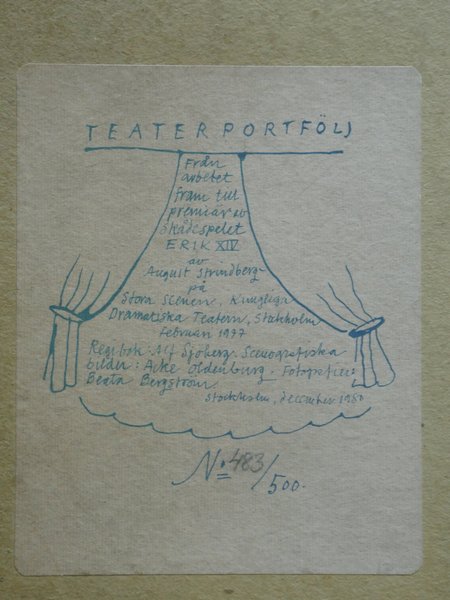 TEATERPORTFÖLJ
Från
arbetet
fram till
premiär av
skådespelet
ERIK XIV
av
August Strindberg
på
Stora Scenen, Kungliga
Dramatiska Teatern, Stockholm
Februari 1977
Regibok: Alf Sjöberg. Scenografiska
bilder: Acke Oldenburg. Fotografier:
Beata Bergström.
Stockholm, december 1980
No 483/500.